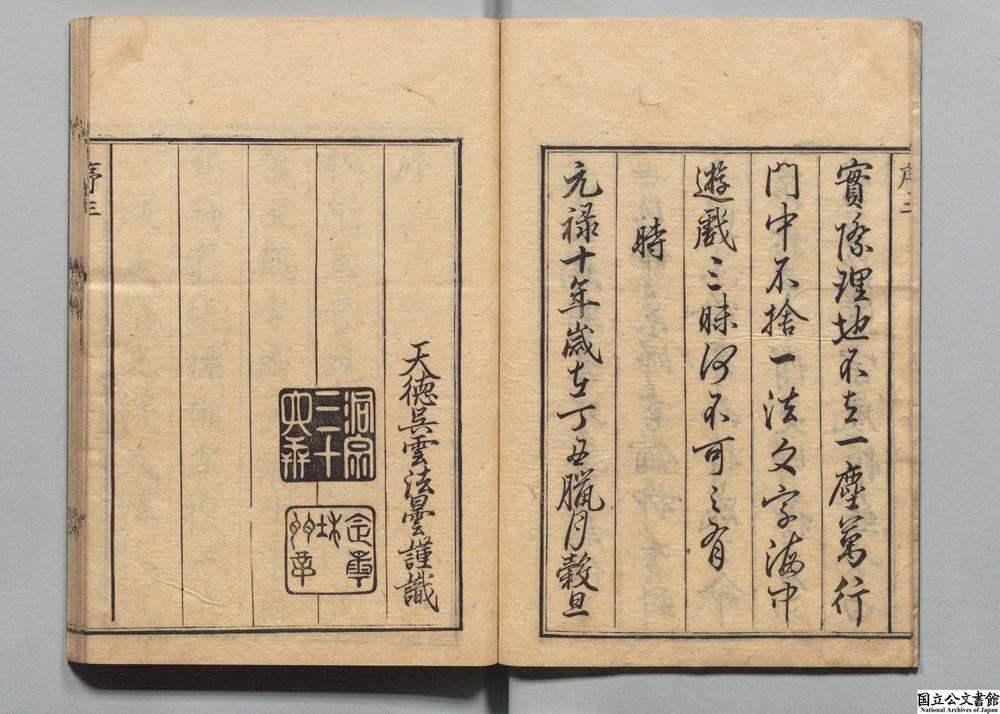 序二
實際理地不立一塵萬行
門中不捨一法文字海中
遊戲三昧何不可之有
時
元禄十年歳在丁丑臘月穀旦
天德吳雲法曇謹識
序三
国立公文書館
National Archives of Japan